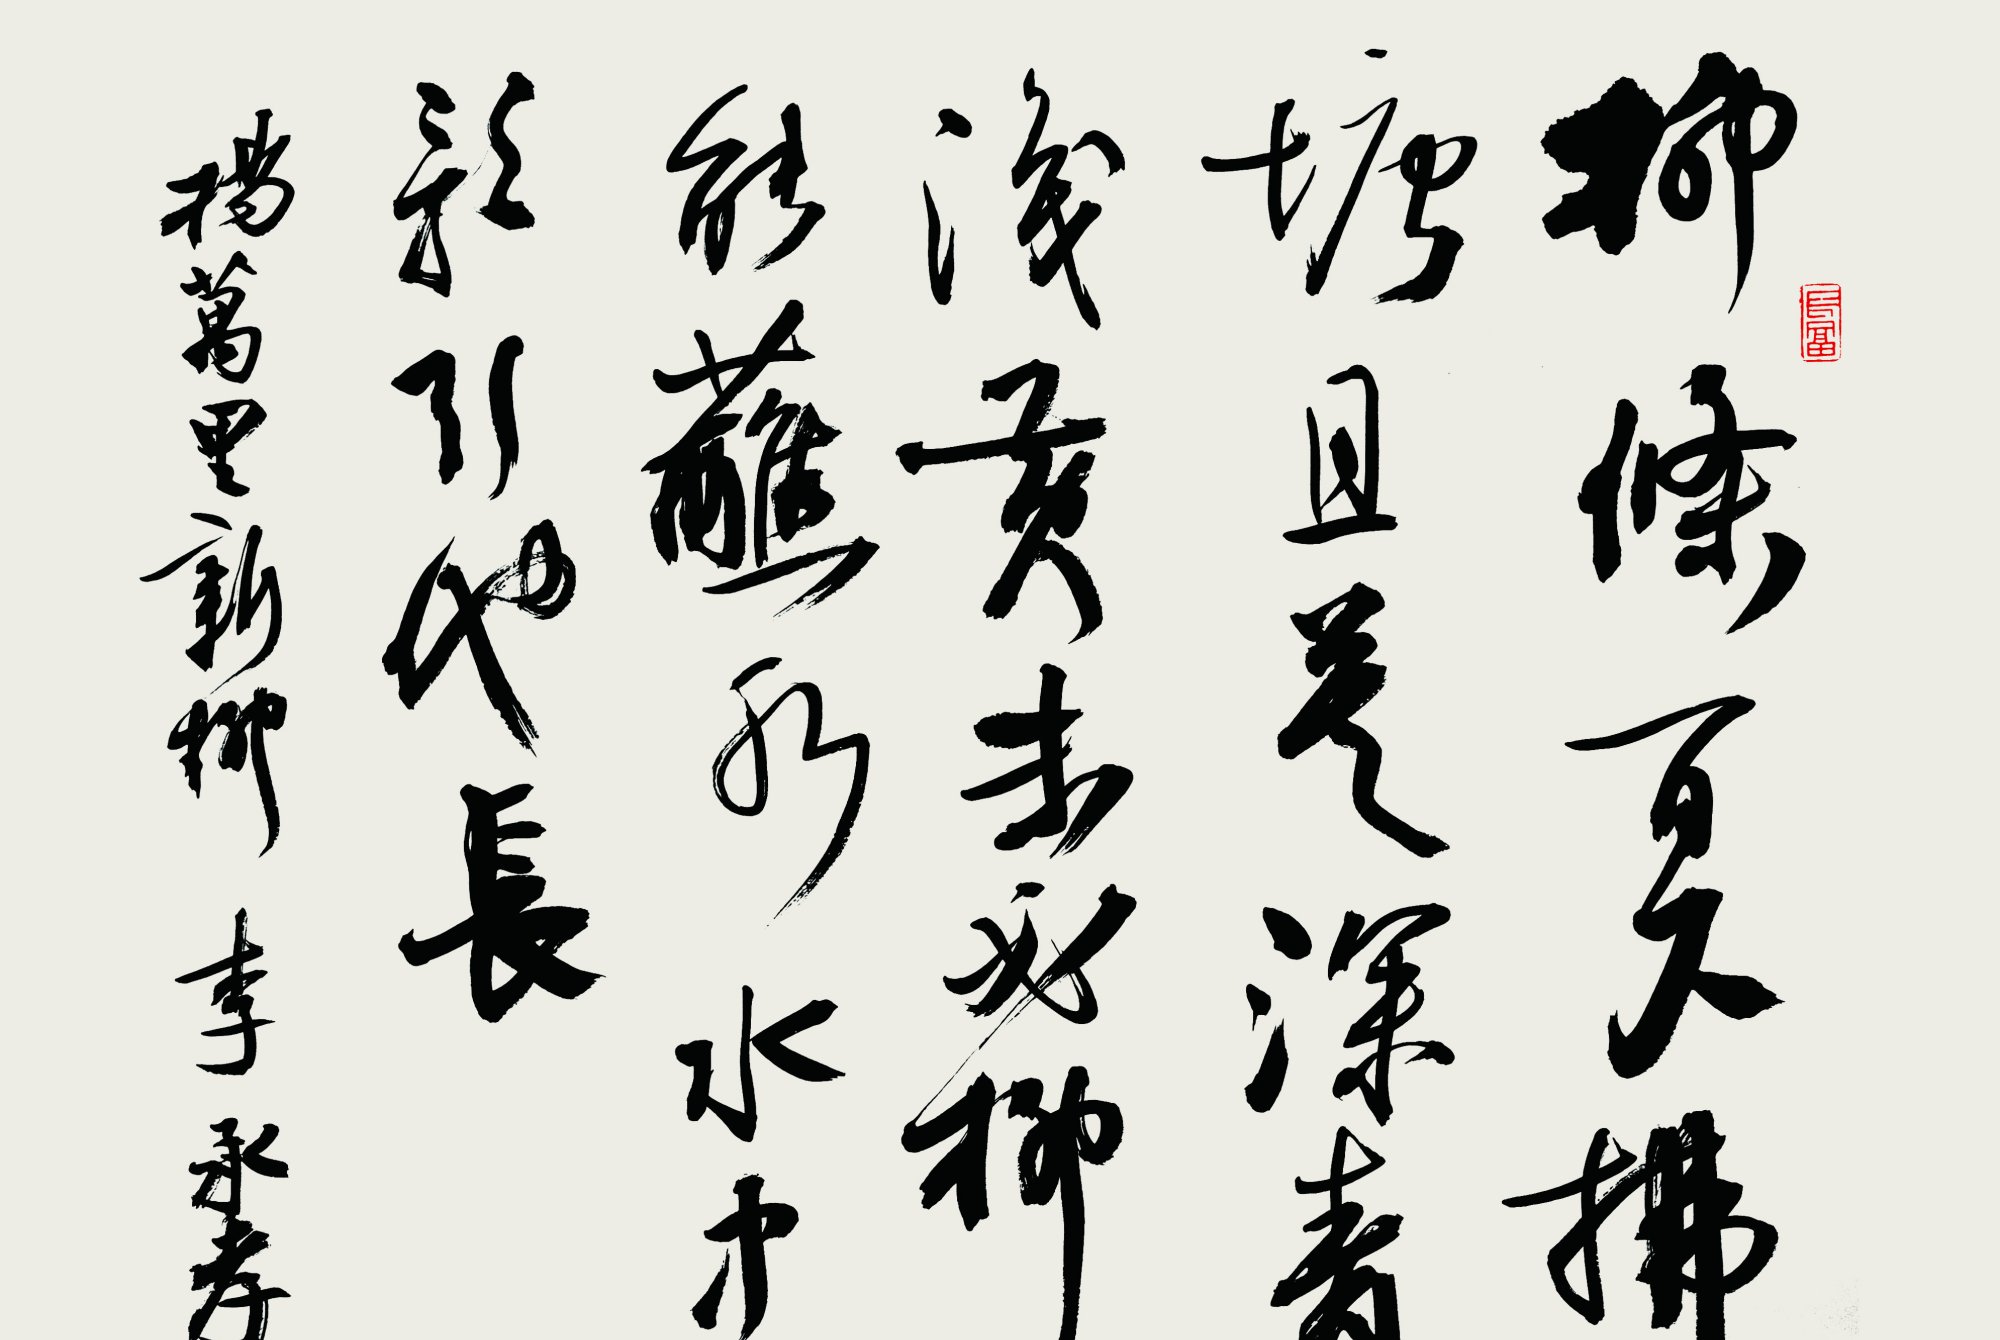 柳條百尺拂
塘且莫深青
淺黃未必柳
能蘸水水中
影引他長
楊萬里新柳 李承孝